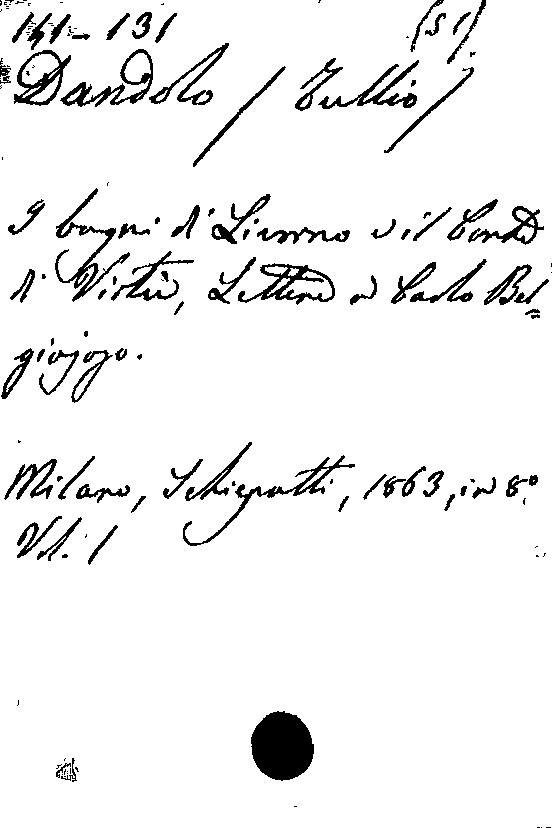 141-131 (S 1)
Dandolo / Tullio /
I bagni di Livorno e il Conte
di Virtù, Lettere a Carlo Bel=
giojoso.
Milano, Schiepatti, 1863, in 8°
Vol. 1